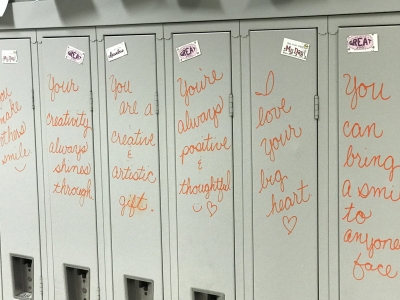 My Day!
you
make
others'
smile
GREAT
Your
creativity
always
shines
through
You
are a
creative
&
artistic
gift.
GREAT
You're
always
positive
&
thoughtful
My Day!
I
love
your
big
heart
GREAT
You
can
bring
a smile
to
anyone's
face